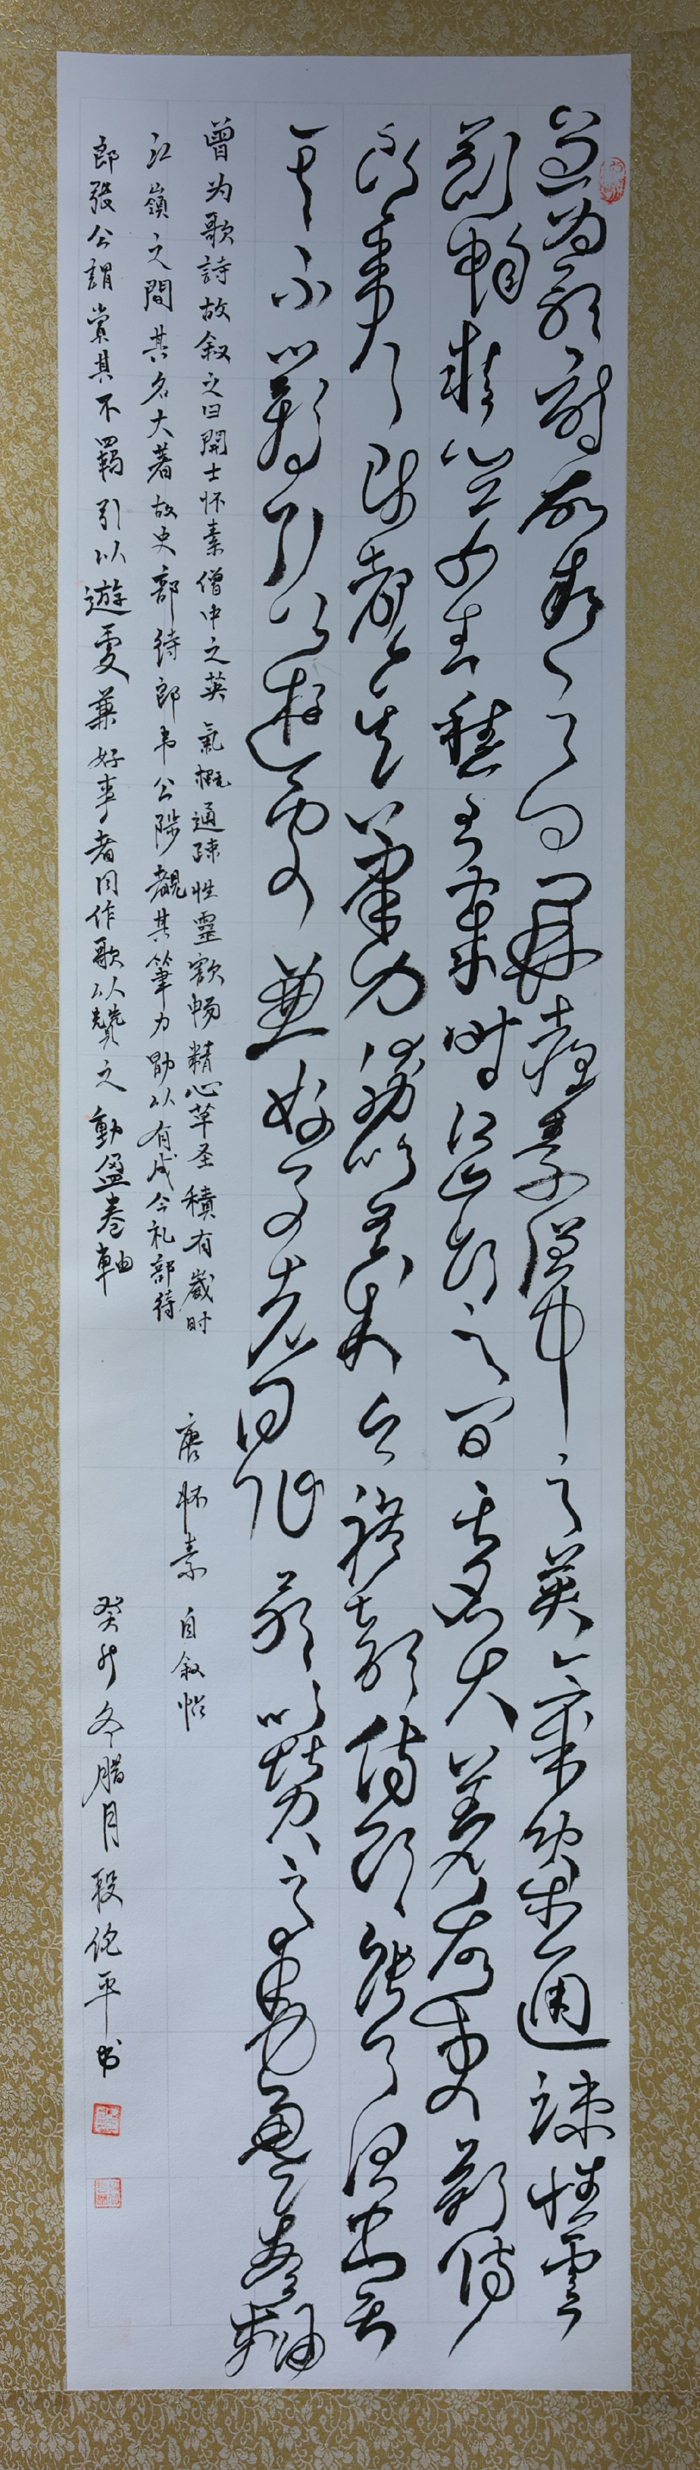 曾为歌詩故叙之曰開士懷素僧中之英氣概通疎性靈
豁暢精心草圣積有歲時江嶺之間其名大著故吏部侍
郎韋公陟覩其筆力勗以有成今禮部侍郎張公謂賞
其不羈引以遊處兼好事者同作歌以贊之動盈卷軸
曾为歌詩故叙之曰開士怀素僧中之英氣概通疎性靈豁畅精心草圣積有歲时
江嶺之間其名大著故史部待郎韦公陟覩其筆力勖以有成今礼部待
郎張公謂賞其不羈引以遊處兼好事者同作歌以贊之動盈卷軸
唐怀素自叙帖
癸卯冬腊月段佗平书